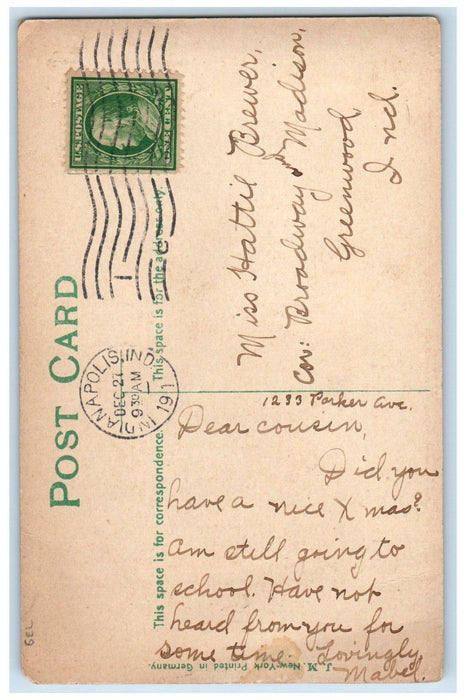 POST CARD
U.S. POSTAGE
ONE CENT
INDIANAPOLIS, IND.
DEC 27
9 30 AM
191
This space is for the address only.
Miss Hattie Brewer,
Cor: Broadway & Madison,
Greenwood
Ind.
This space is for correspondence.
1233 Parker Ave.
Dear cousin,
Did you
have a nice X mas?
Am still going to
school. Have not
heard from you for
some time. Lovingly
Mabel.
J. M. New-York Printed in Germany.